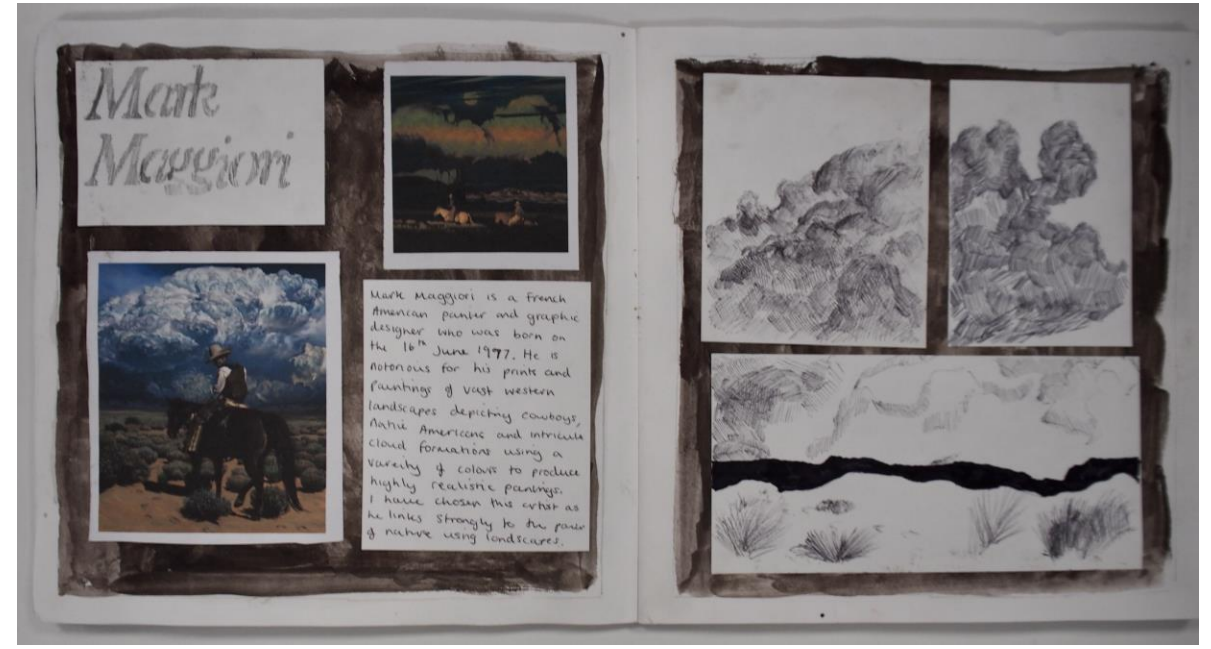 Mark
Maggiori
Mark Maggiori is a French
American painter and graphic
designer who was born on
the 16th June 1977. He is
notorious for his prints and
Paintings of vast western
landscapes depicting cowboys,
Native Americans and intricate
cloud formations using a
vareity of colours to produce
highly realistic paintings.
I have chosen this artist as
he links strongly to the power
of nature using landscapes.